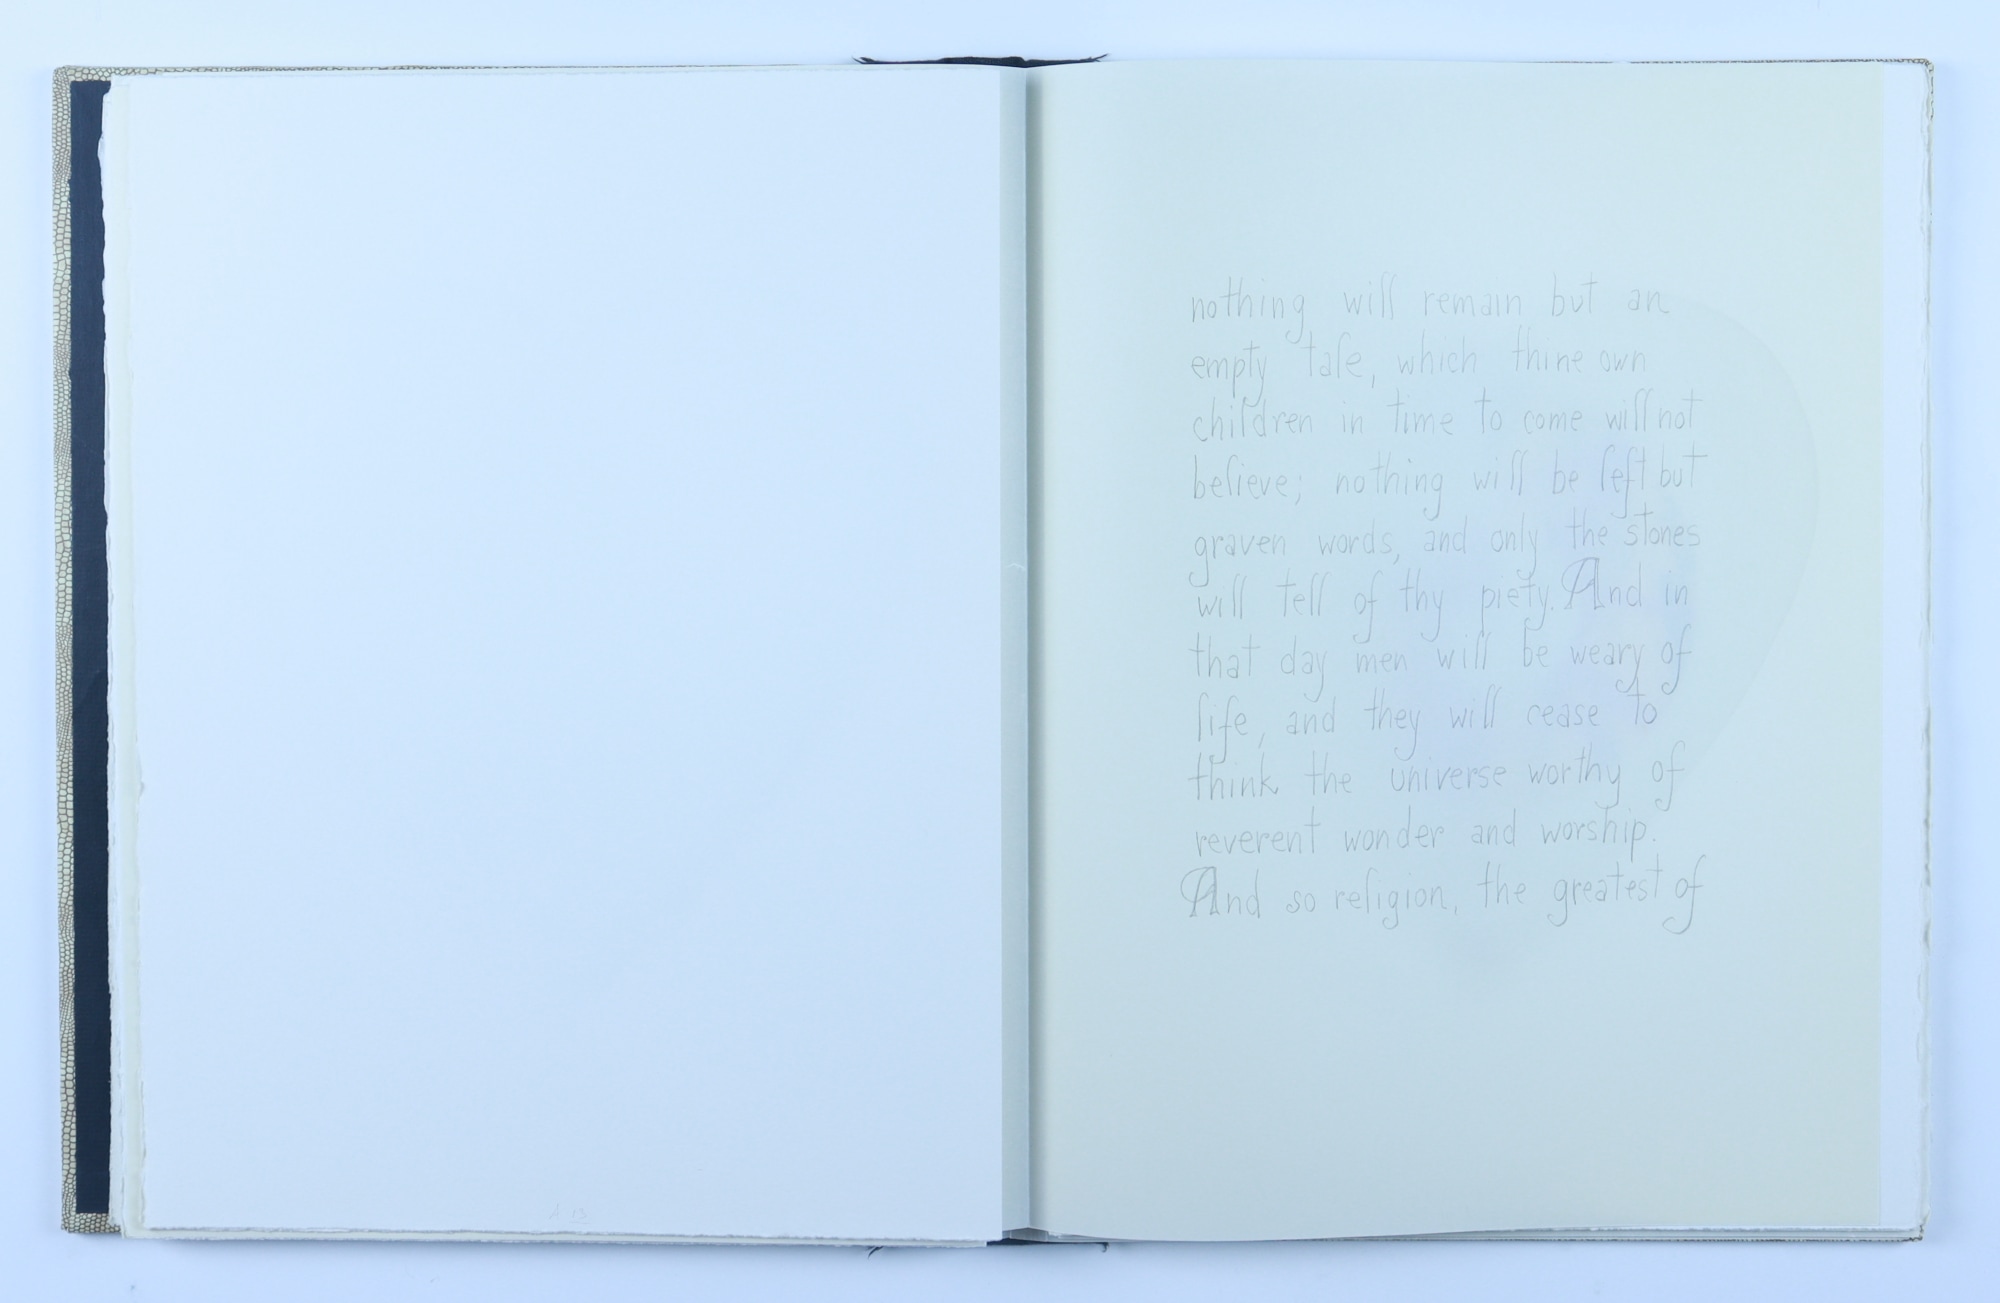 nothing will remain but an
empty tale, which thine own
children in time to come will not
believe; nothing will be left but
graven words, and only the stones
will tell of thy piety. And in
that day men will be weary of
life, and they will cease to
think the universe worthy of
reverent wonder and worship.
And so religion, the greatest of